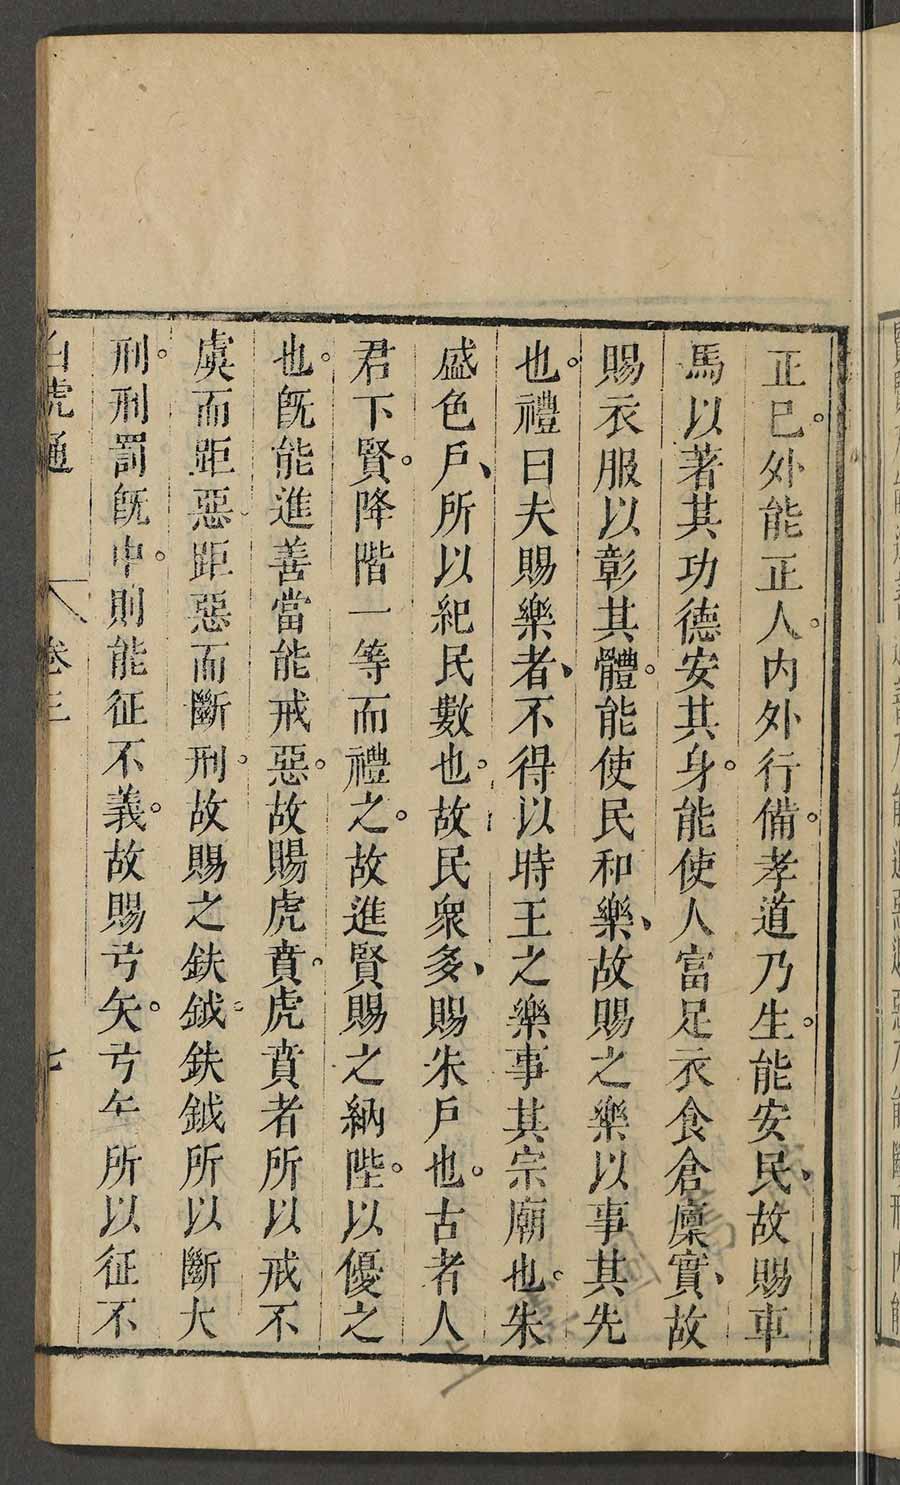 正已。外能正人。内外行備。孝道乃生。能安民、故賜車
馬以著其功德安其身。能使人富足衣食倉廩實、故
賜衣服以彰其體。能使民和樂、故賜之樂以事其先
也。禮曰夫賜樂者、不得以時王之樂事其宗廟也。朱
盛色戶、所以紀民數也。故民衆多、賜朱戶也。古者人
君下賢。降階一等而禮之。故進賢賜之納陛。以優之
也。旣能進善當能戒惡。故賜虎賁。虎賁者所以戒不
虞而距惡距惡而斷刑。故賜之鈇鉞。鈇鉞所以斷大
刑。刑罰旣中。則能征不義。故賜弓矢。弓矢所以征不
白虎通 卷三 七